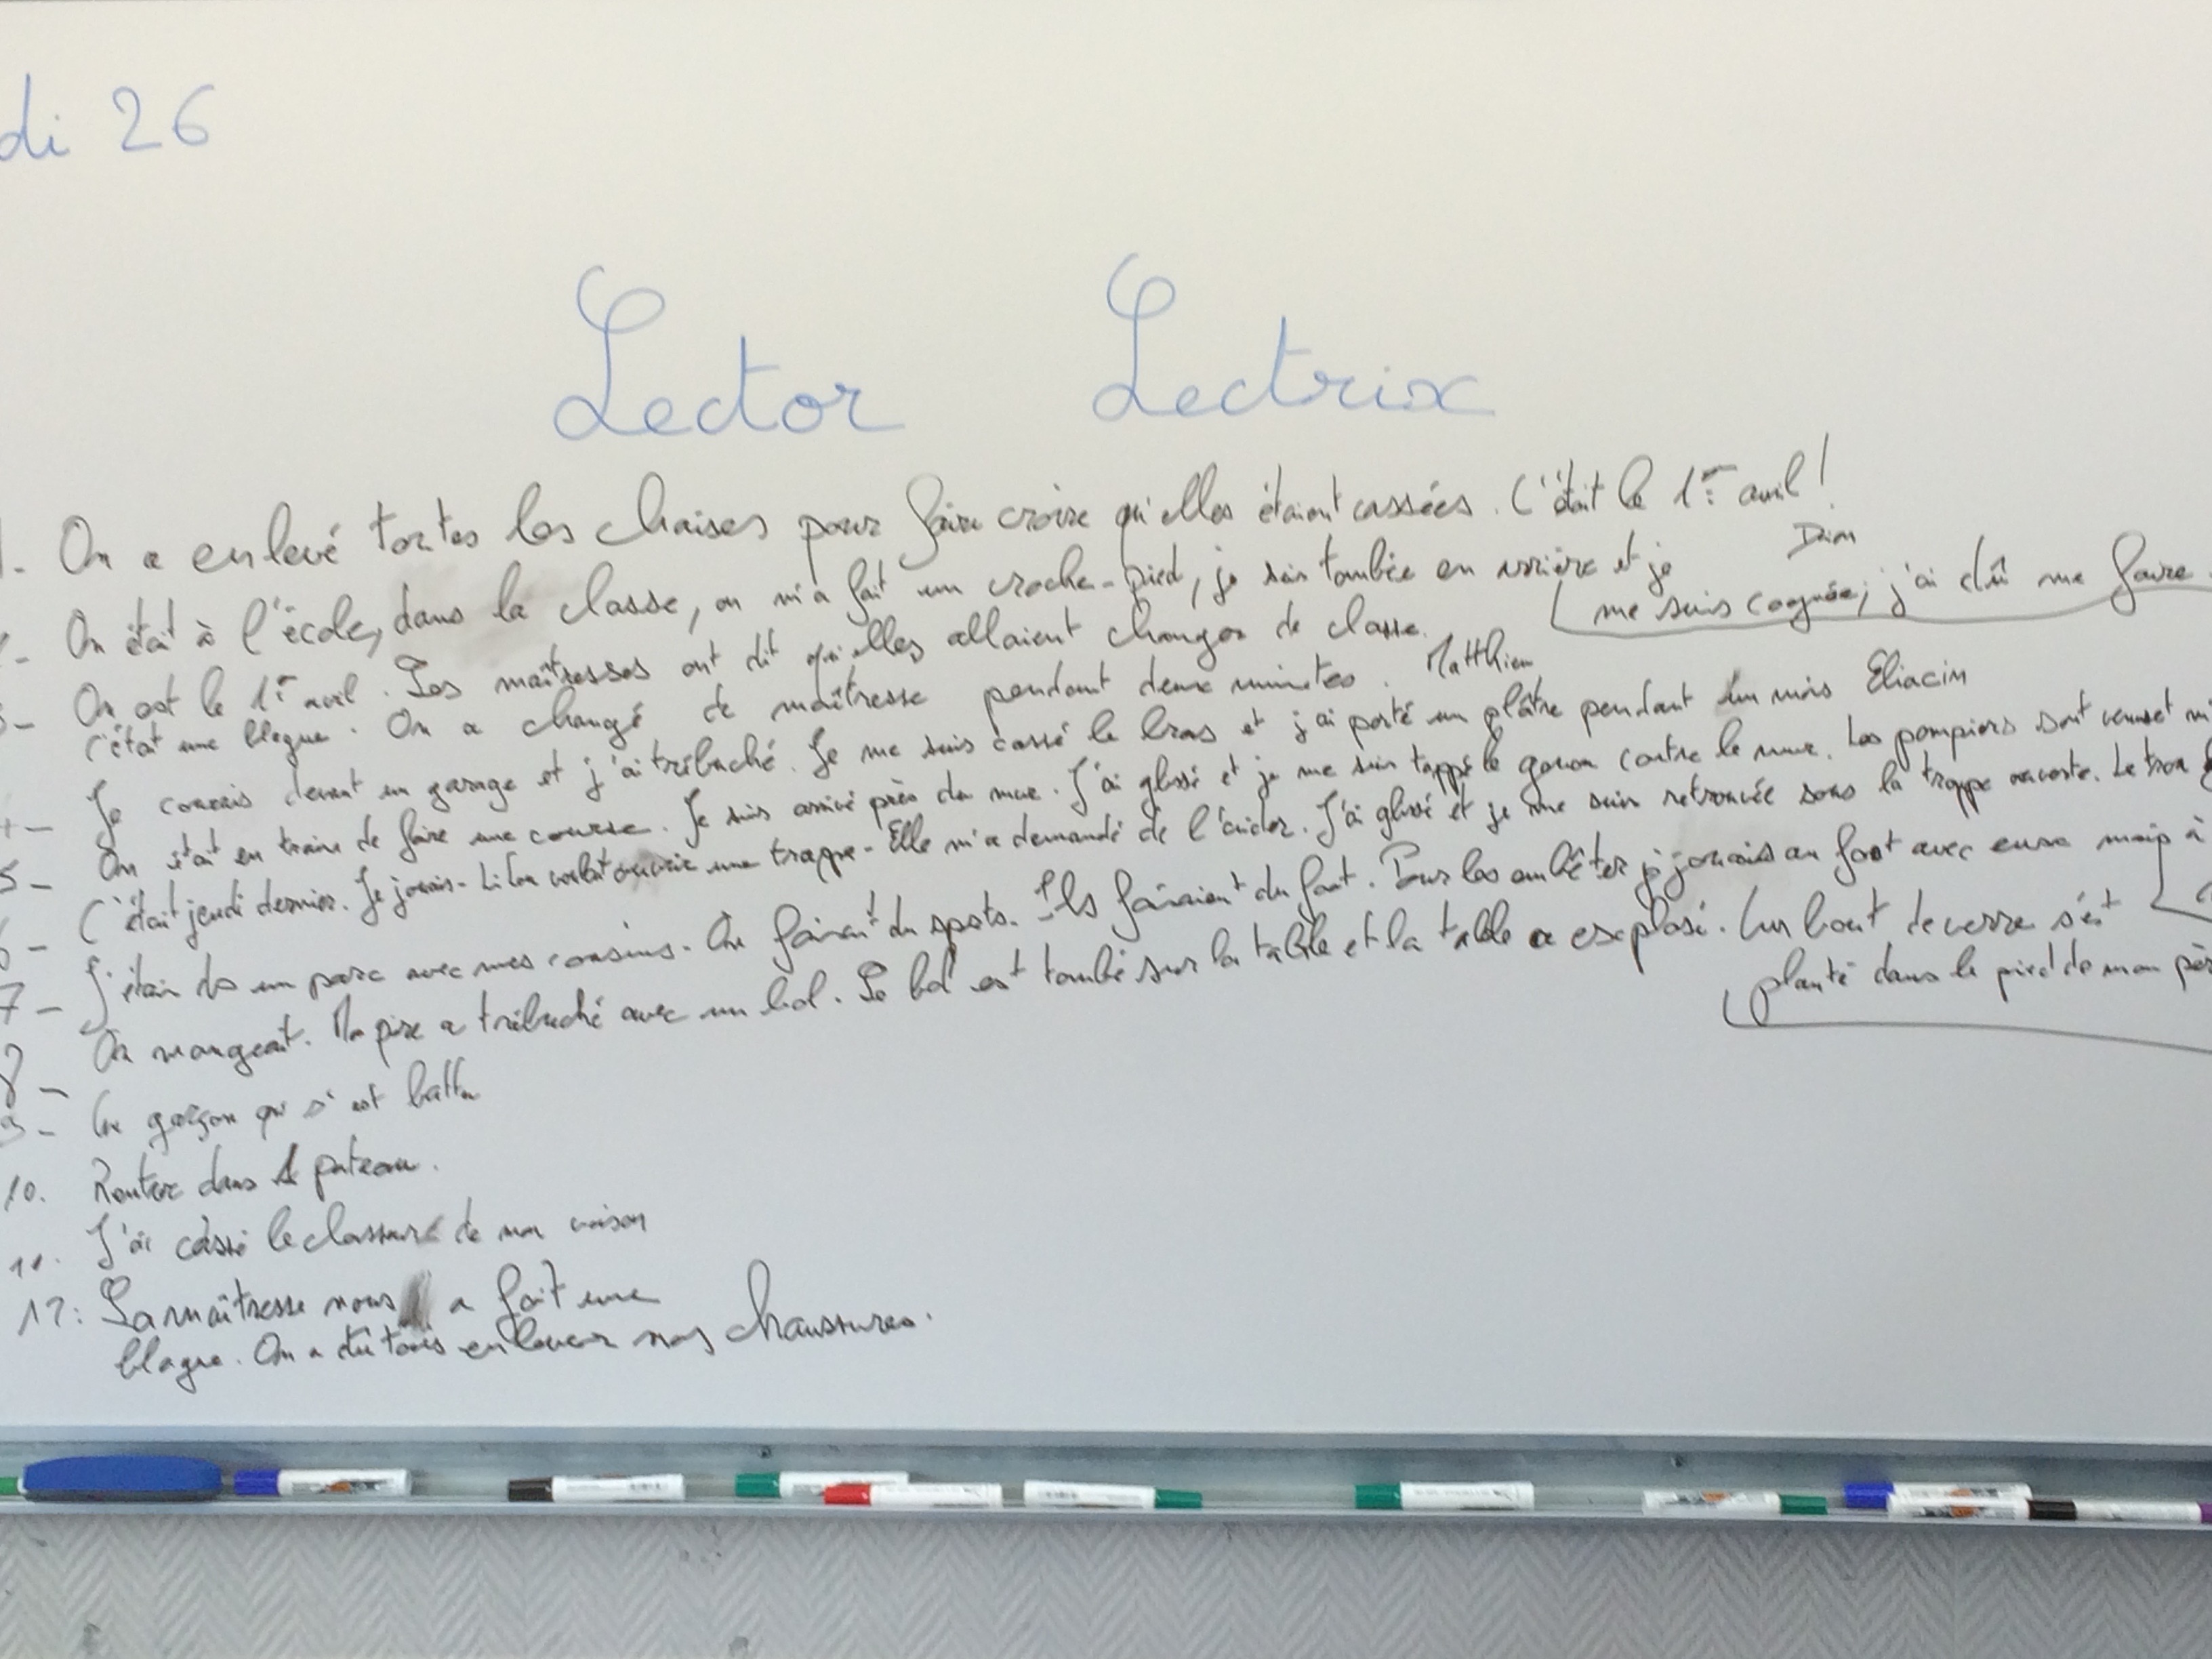 di 26
Lector Lectrix
1. On a enlevé toutes les chaises pour faire croire qu'elles étaient cassées. C'était le 1er avril!
Dian
2- On était à l'école, dans la classe, on m'a fait un croche-pied, je suis tombée en arrière et je
me suis cognée; j'ai dû me faire
3- On est le 1er avril. Les maîtresses ont dit qu'elles allaient changer de classe.
c'était une blague. On a changé de maîtresse pendant deux minutes. Matthieu
4- Je courais devant un garage et j'ai trébuché. Je me suis cassé le bras et j'ai porté un plâtre pendant un mois Eliacin
5- On était en train de faire une course. Je suis arrivé près du mur. J'ai glissé et je me suis tappé le genou contre le mur. Les pompiers sont venus et m'
6- C'était jeudi dernier. Je jouais. voulait ouvrir une trappe. Elle m'a demandé de l'aider. J'ai glissé et je me suis retrouvée sous la trappe ouverte. Le trou
7- J'étais ds un parc avec mes cousins. On faisait du sport. Ils faisaient du foot. Pour les embêter je jouais au foot avec eux mais à
8- On mangeait. Mon père a trébuché avec un bol. Le bol est tombé sur la table et la table a explosé. Un bout de verre s'est
planté dans le pied de mon pèr
9- Un garçon qui s'est battu
10. Rentrer dans 1 poteau.
11. J'ai cassé le classeur de mon voisin
12: La maîtresse nous a fait une
blague. On a dû tous enlever nos chaussures.